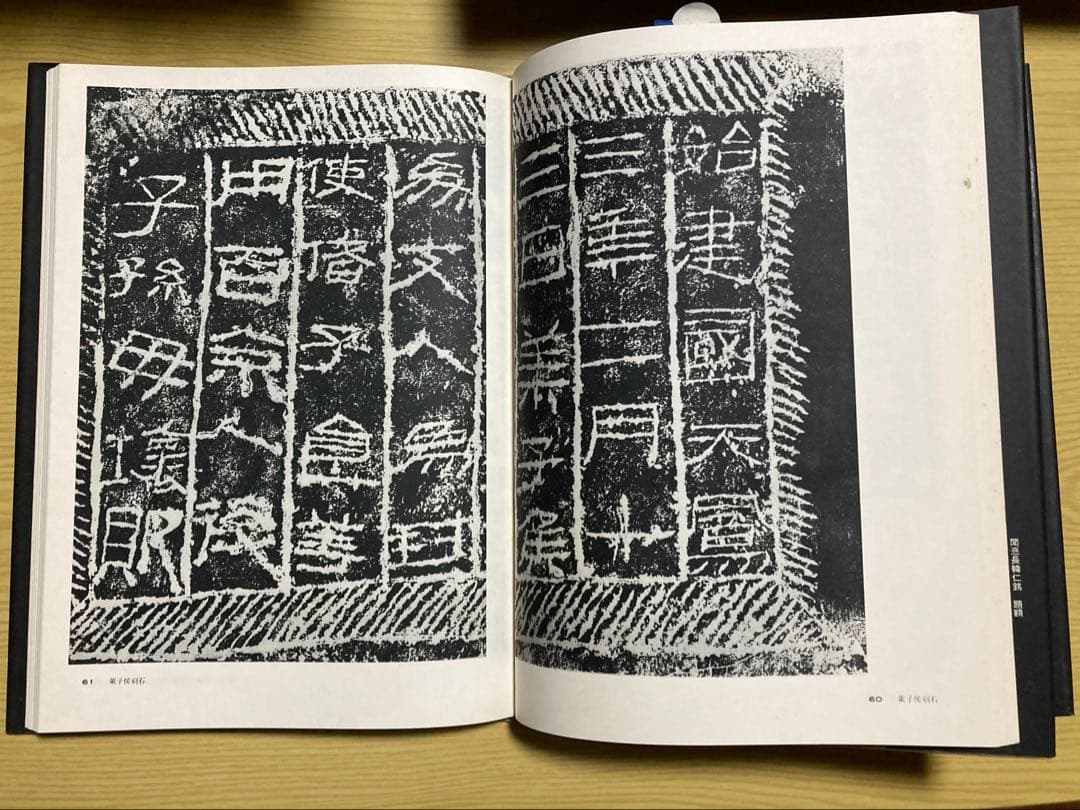 始建國天鳳
三年二月十
三日萊子侯
為支人為封
使偖子食等
用百余人後
子孫毋壞敗
60 萊子侯刻石
61 萊子侯刻石
聞憙長韓仁銘 題額